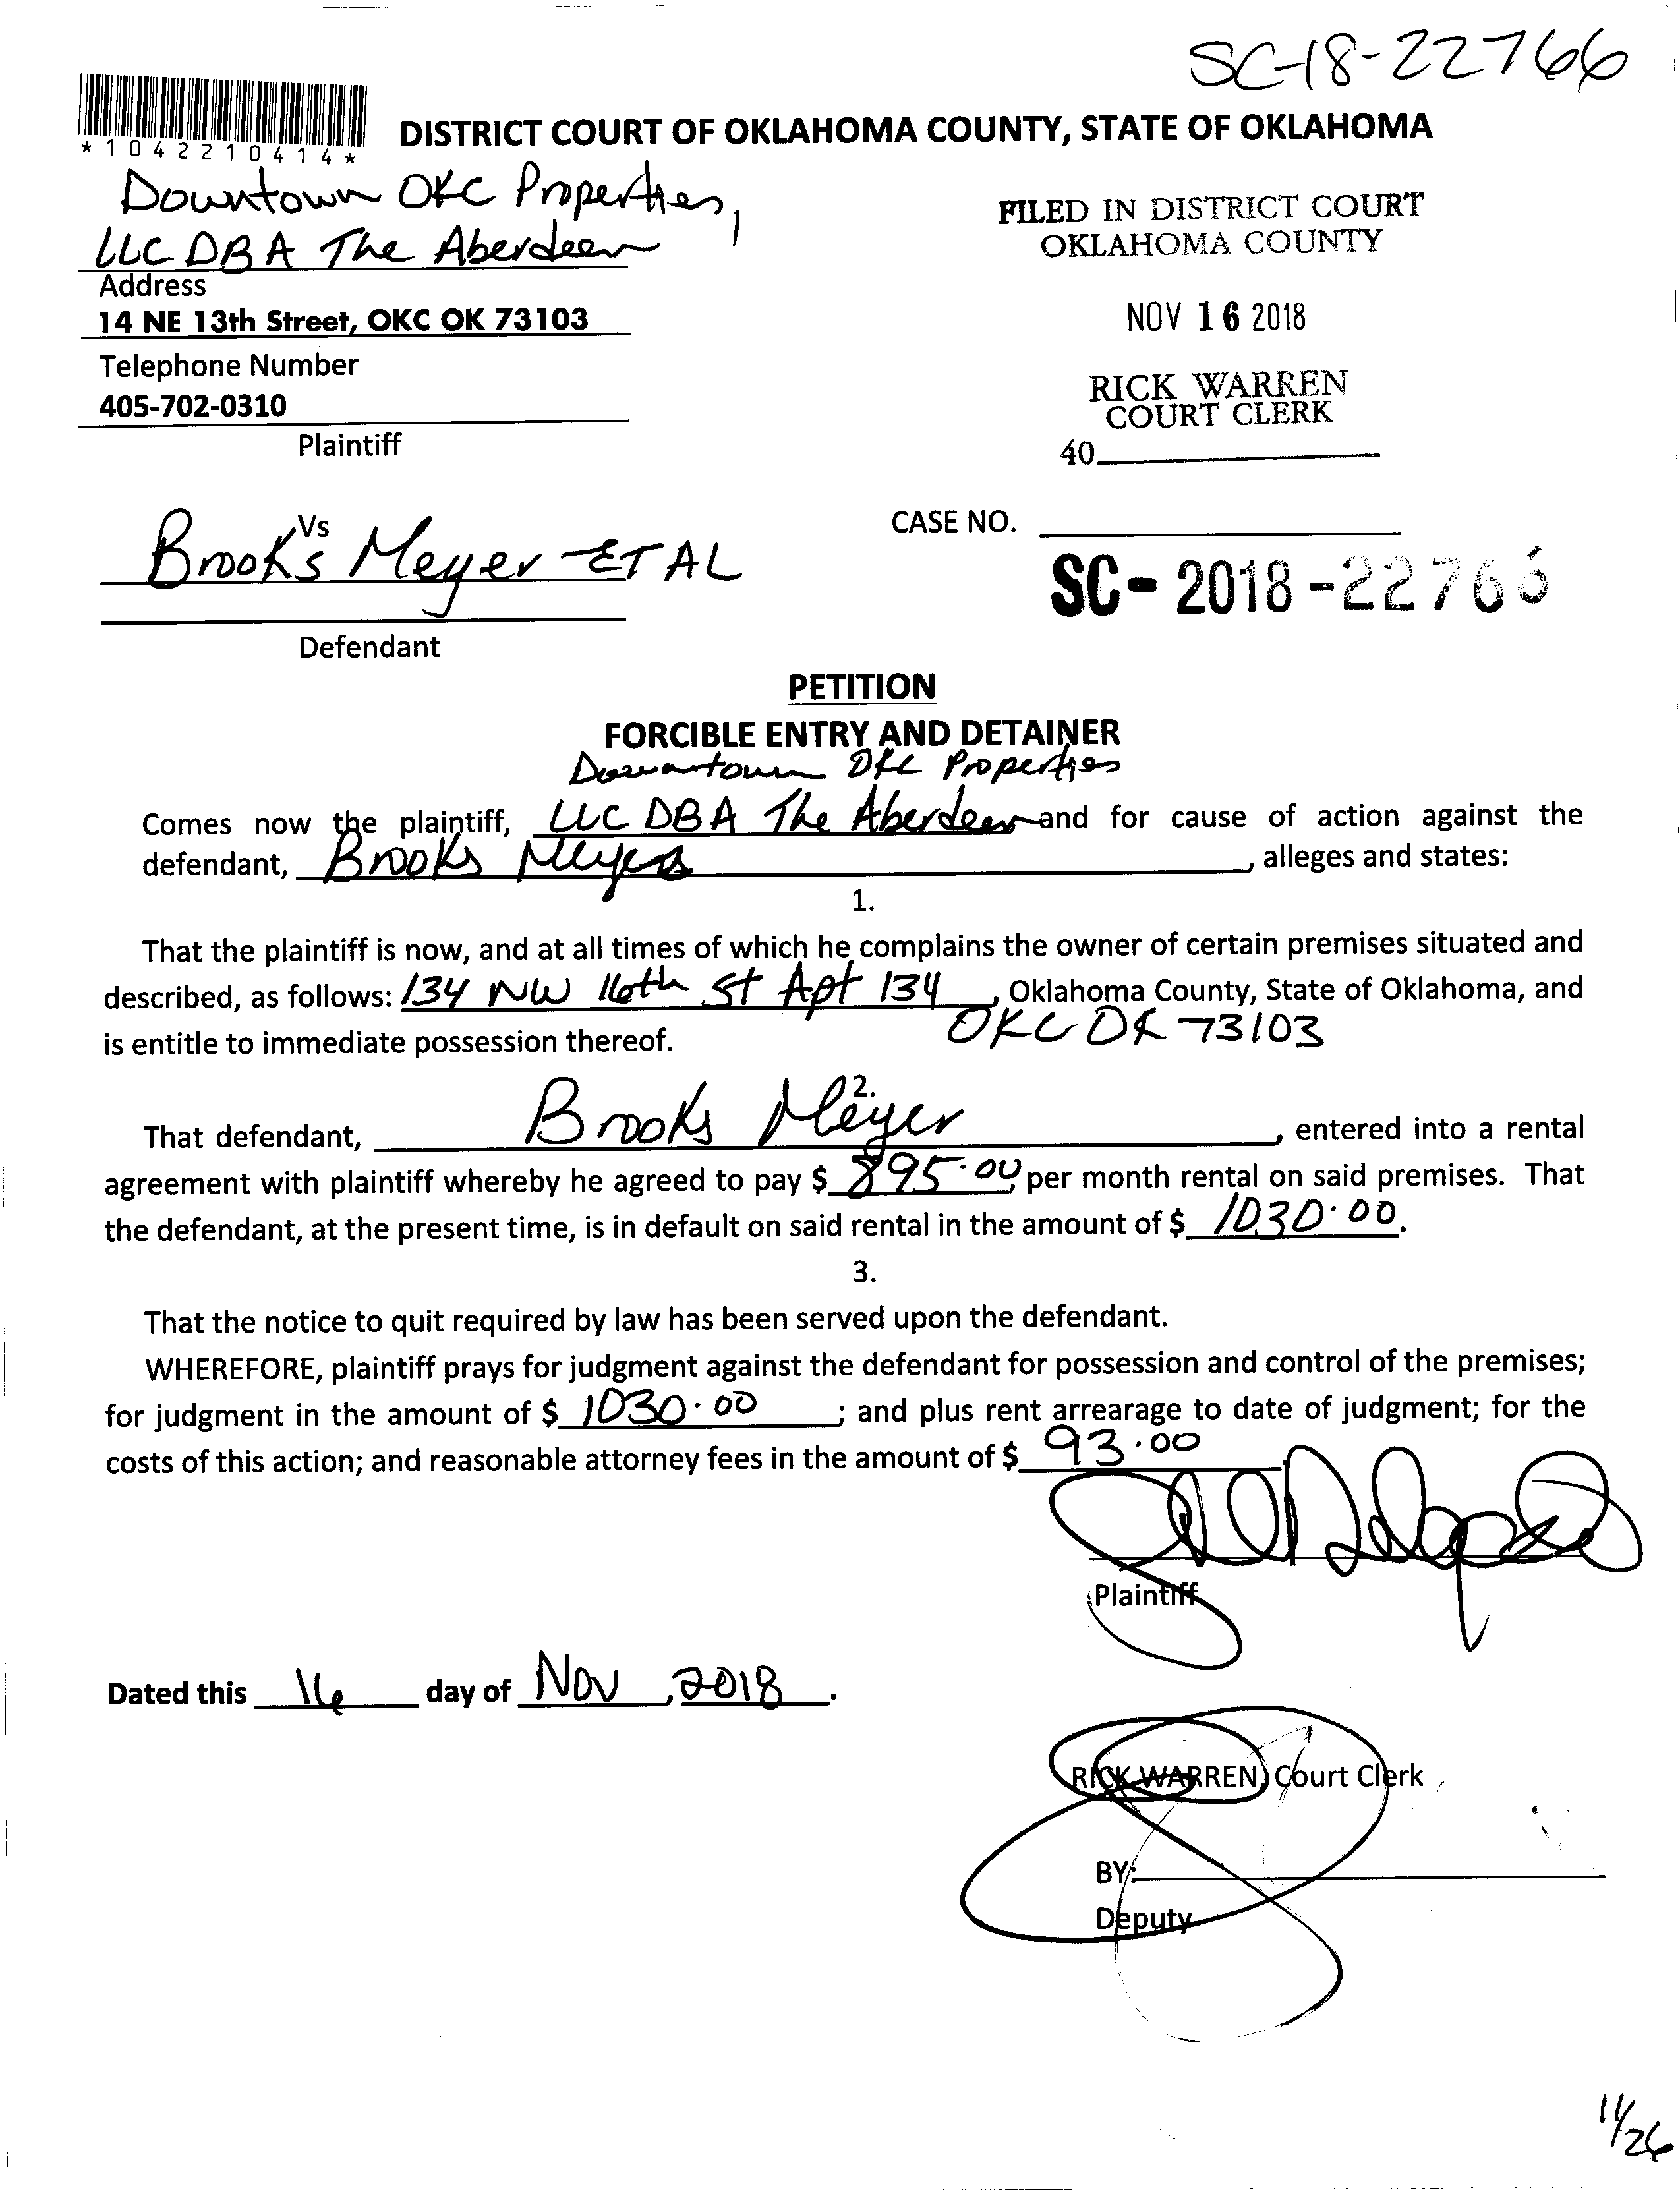 SC-18-22766
*1042210414*
DISTRICT COURT OF OKLAHOMA COUNTY, STATE OF OKLAHOMA
Downtown OKC Properties,
LLC DBA The Aberdeen
Address
14 NE 13th Street, OKC OK 73103
Telephone Number
405-702-0310
Plaintiff
FILED IN DISTRICT COURT
OKLAHOMA COUNTY
NOV 16 2018
RICK WARREN
COURT CLERK
40
Vs
Brooks Meyer ET AL
Defendant
CASE NO.
SC- 2018 -22766
PETITION
FORCIBLE ENTRY AND DETAINER
Downtown OKC Properties
Comes now the plaintiff, LLC DBA The Aberdeen and for cause of action against the
defendant, Brooks Meyers, alleges and states:
1.
That the plaintiff is now, and at all times of which he complains the owner of certain premises situated and
described, as follows: 134 NW 16th St Apt 134, Oklahoma County, State of Oklahoma, and
OKC OK 73103
is entitle to immediate possession thereof.
2.
That defendant, Brooks Meyer, entered into a rental
agreement with plaintiff whereby he agreed to pay $ 895.00 per month rental on said premises. That
the defendant, at the present time, is in default on said rental in the amount of $ 1030.00.
3.
That the notice to quit required by law has been served upon the defendant.
WHEREFORE, plaintiff prays for judgment against the defendant for possession and control of the premises;
for judgment in the amount of $ 1030.00 ; and plus rent arrearage to date of judgment; for the
costs of this action; and reasonable attorney fees in the amount of $ 93.00
Plaintiff
Dated this 16 day of Nov, 2018.
RICK WARREN, Court Clerk
BY:
Deputy
11/26